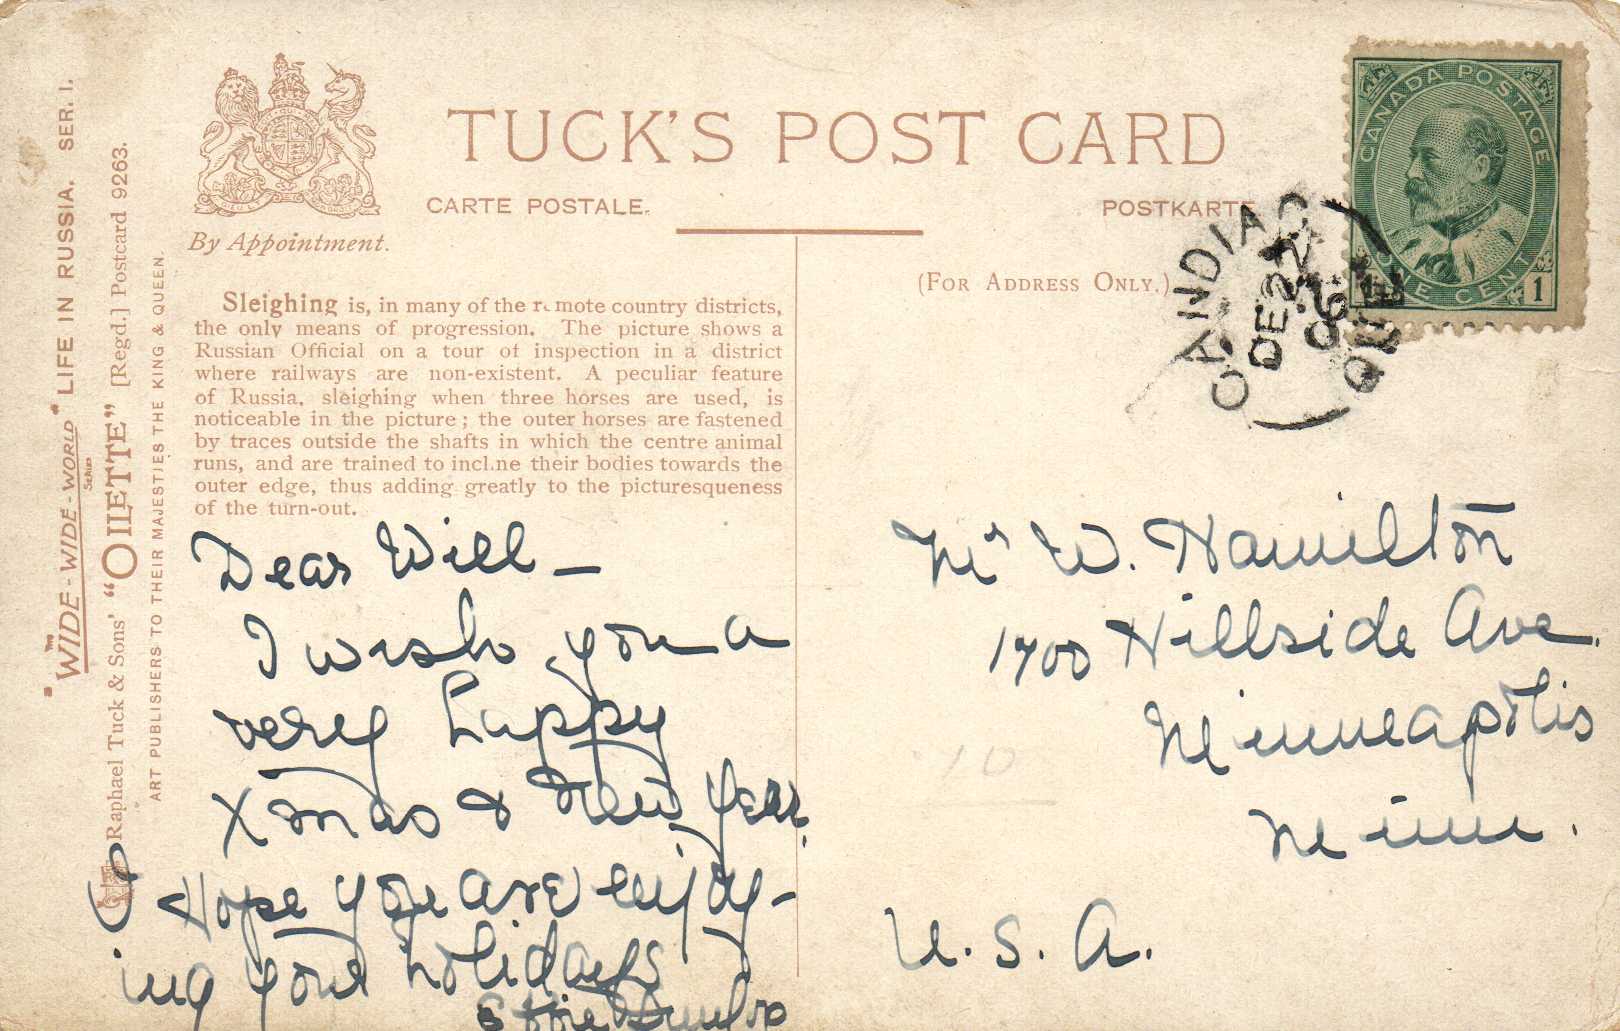 TUCK'S POST CARD
CARTE POSTALE.
POSTKARTE
By Appointment.
(FOR ADDRESS ONLY.)
CANADA POSTAGE
ONE CENT
1
CANDIAC
DE 22
06
QUE
Sleighing is, in many of the remote country districts,
the only means of progression. The picture shows a
Russian Official on a tour of inspection in a district
where railways are non-existent. A peculiar feature
of Russia, sleighing when three horses are used, is
noticeable in the picture; the outer horses are fastened
by traces outside the shafts in which the centre animal
runs, and are trained to incl.ne their bodies towards the
outer edge, thus adding greatly to the picturesqueness
of the turn-out.
Dear Will —
I wish you a
very happy
Xmas & New Year.
I Hope you are enjoy-
ing your holidays
Effie
Mr W. Hamilton
1700 Hillside Ave.
Minneapolis
Minn.
U.S.A.
10
THE "WIDE-WIDE-WORLD" SERIES LIFE IN RUSSIA. SER. I.
Raphael Tuck & Sons' "OILETTE" [Regd.] Postcard 9263.
ART PUBLISHERS TO THEIR MAJESTIES THE KING & QUEEN.